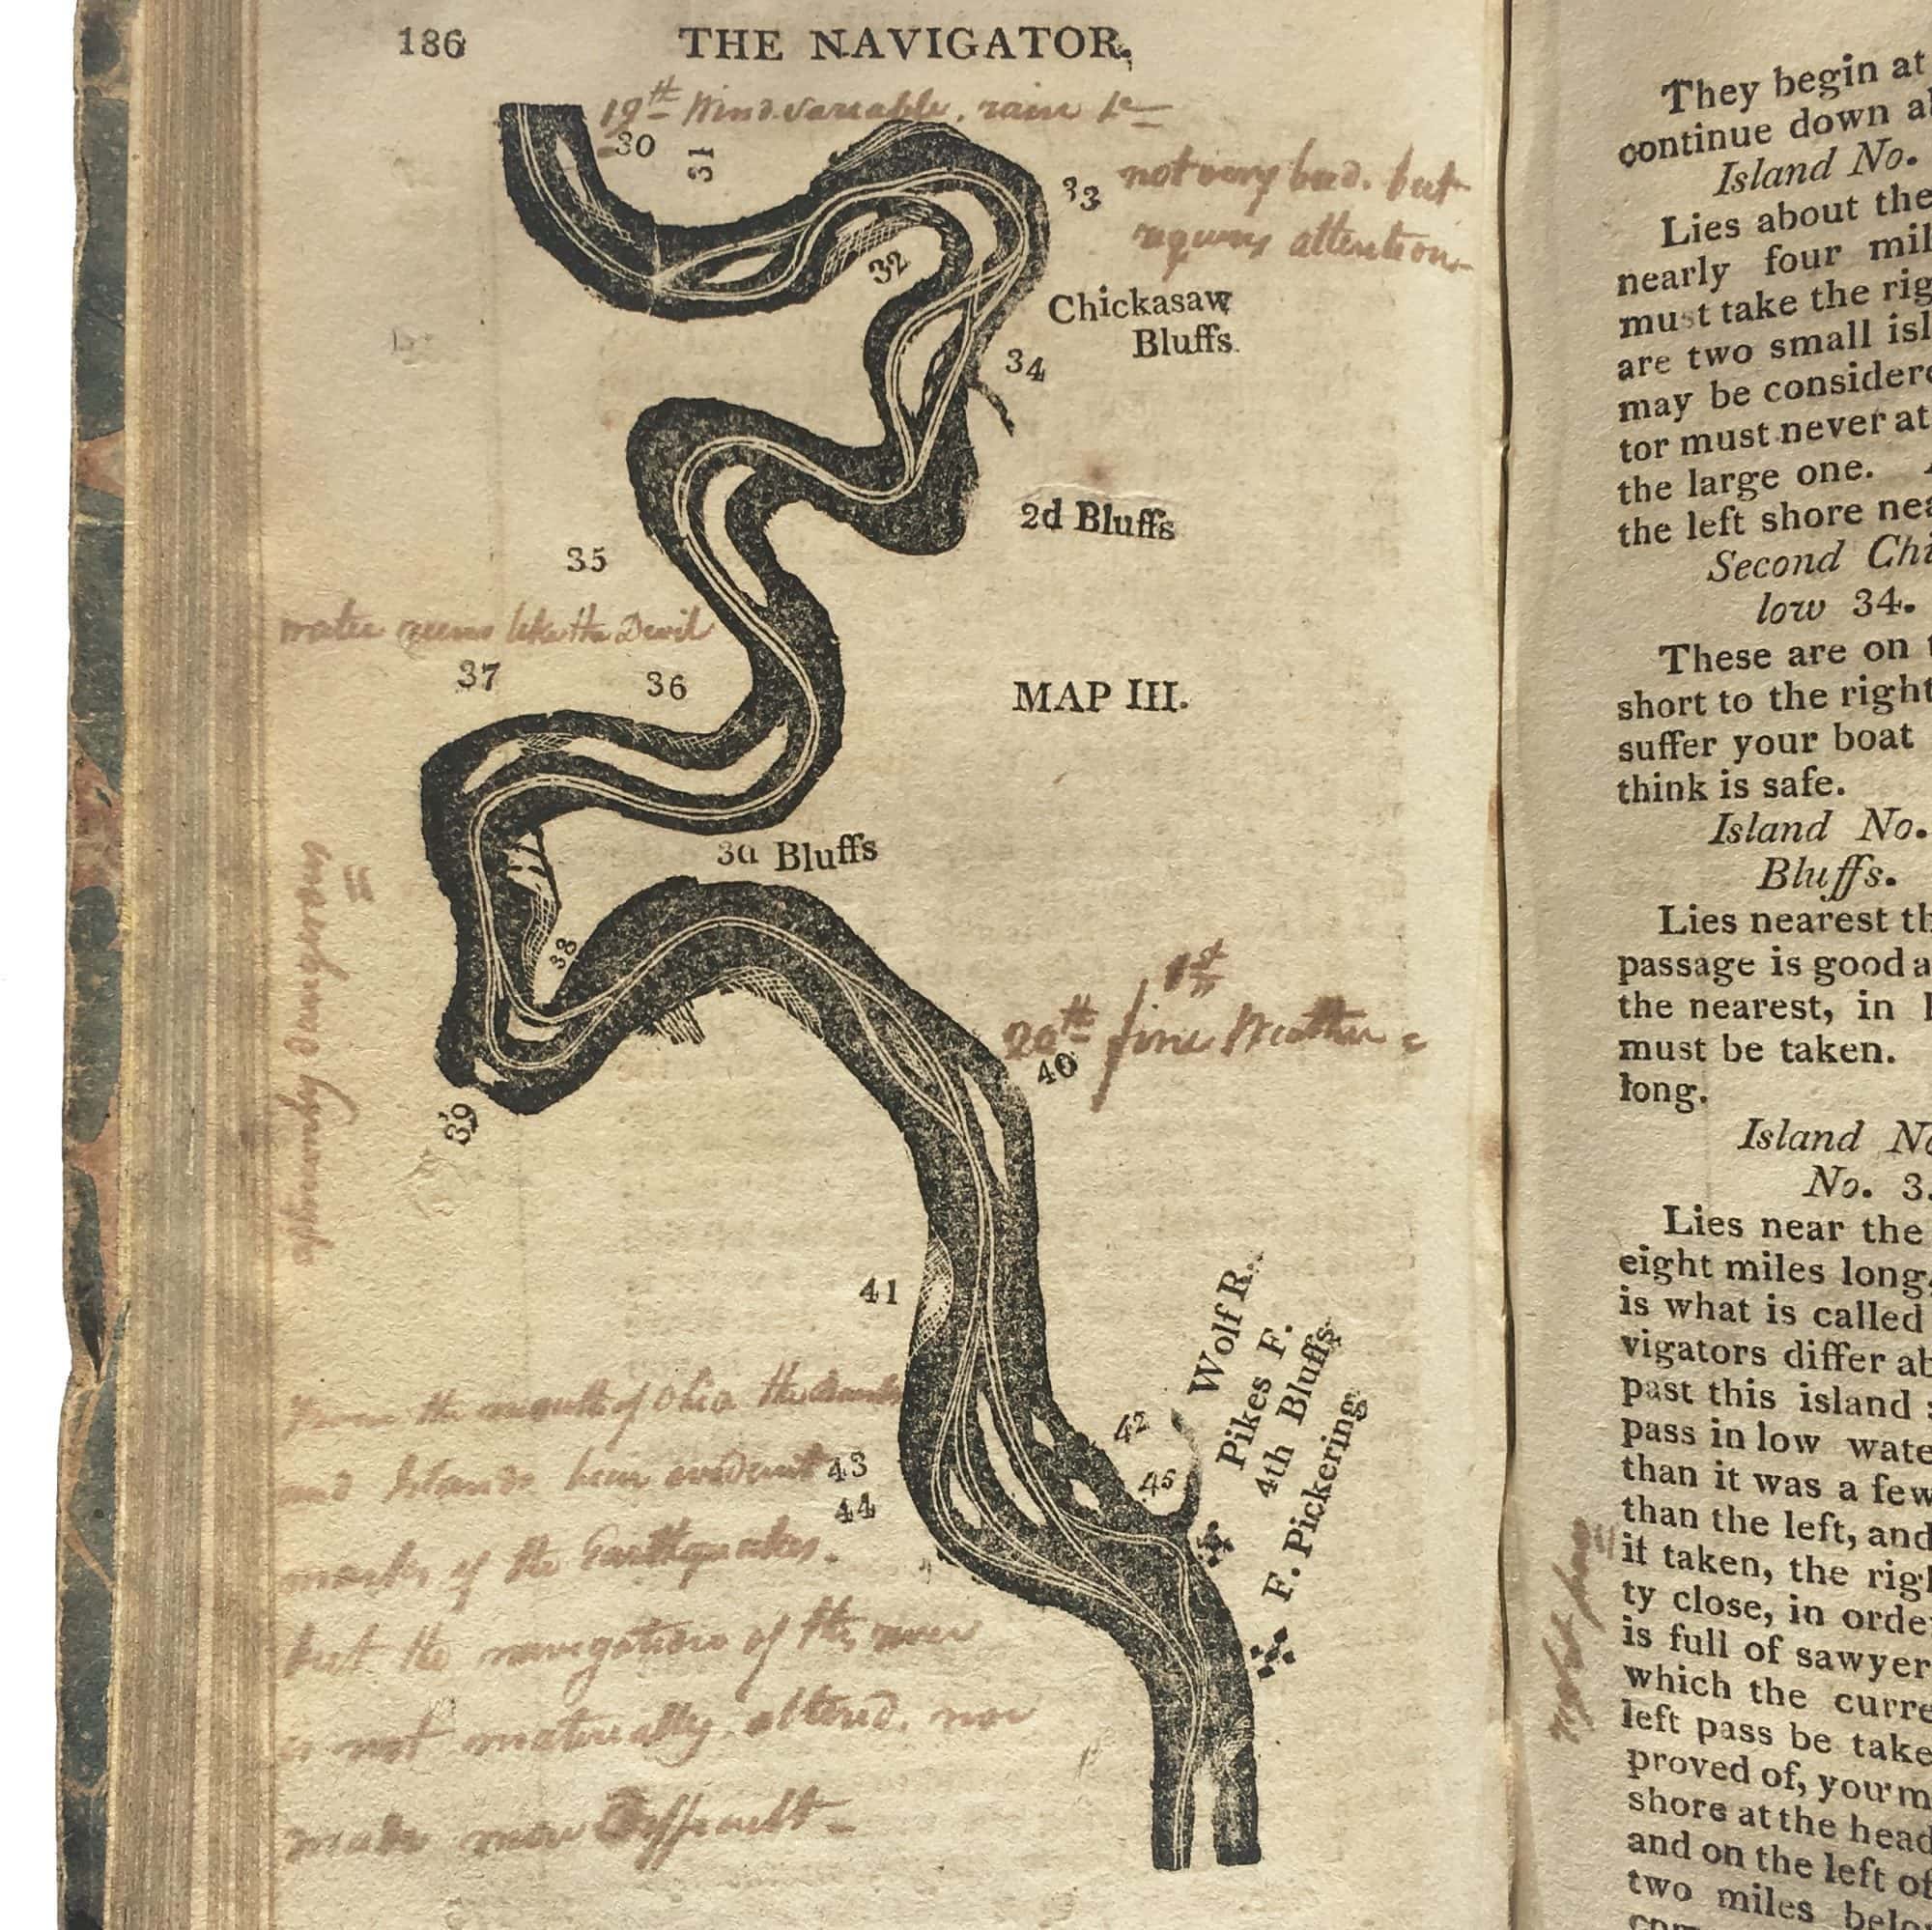 186
THE NAVIGATOR,
19th Wind variable, rain &c
30
31
33
not very bad. but
requires attention
32
Chickasaw
Bluffs.
34
2d Bluffs
35
water runs like the Devil
37
36
MAP III.
3d Bluffs
extremely dangerous
38
1st
20th fine Weather
40
39
41
Wolf R.
Pikes F.
4th Bluffs
F. Pickering
42
45
43
44
From the mouth of Ohio the banks
and Islands bear evident
marks of the Earthquakes.
but the navigation of the river
is not materially altered. nor
made more Difficult
They begin at
continue down
Island No.
Lies about the
nearly four
must take the
are two small
may be
must never at
the large one.
the left shore
Second
low 34.
These are on
short to the right
suffer your boat
think is safe.
Island No.
Bluffs.
Lies nearest
passage is good
the nearest, in
must be taken.
long.
Island
No. 3
Lies near the
eight miles long
is what is called
vigators differ
past this island
pass in low
than it was a few
than the left, and
it taken, the
ty close, in
is full of
which the
left pass be
proved of,
shore at the head
and on the left of
two miles
right pass